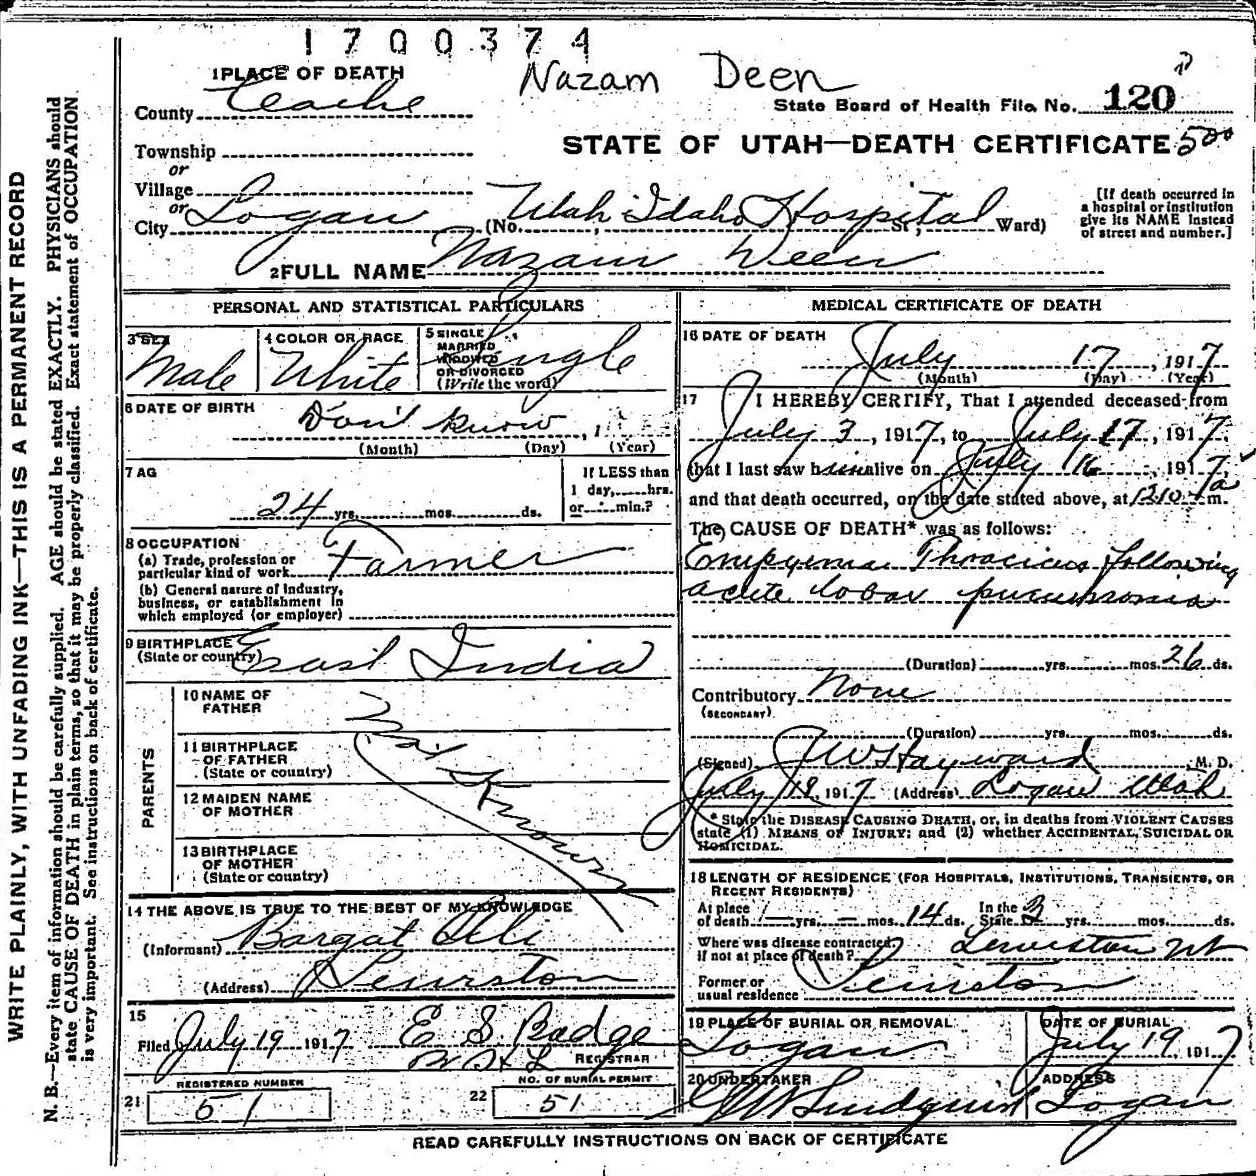 1700374
Nazam Deen
1 PLACE OF DEATH
County Cache
State Board of Health File No. 120
STATE OF UTAH—DEATH CERTIFICATE 500
Township
or
Village
or
City Logan (No. Utah-Idaho Hospital St; Ward)
[If death occurred in
a hospital or institution
give its NAME instead
of street and number.]
2 FULL NAME Nazam Deen
PERSONAL AND STATISTICAL PARTICULARS
3 SEX
Male
4 COLOR OR RACE
White
5 SINGLE
MARRIED
WIDOWED
OR DIVORCED
(Write the word)
Single
6 DATE OF BIRTH
Don't know, 1
(Month) (Day) (Year)
7 AG
24 yrs. mos. ds.
If LESS than
1 day, hrs.
or min.?
8 OCCUPATION
(a) Trade, profession or
particular kind of work Farmer
(b) General nature of industry,
business, or establishment in
which employed (or employer)
9 BIRTHPLACE
(State or country) East India
PARENTS
10 NAME OF
FATHER
11 BIRTHPLACE
OF FATHER
(State or country)
12 MAIDEN NAME
OF MOTHER
13 BIRTHPLACE
OF MOTHER
(State or country)
Not Known
14 THE ABOVE IS TRUE TO THE BEST OF MY KNOWLEDGE
(Informant) Bargat Ali
(Address) Lewiston
15
Filed July 19 1917 E S Badge
REGISTRAR
REGISTERED NUMBER
21 51
NO. OF BURIAL PERMIT
22 51
MEDICAL CERTIFICATE OF DEATH
16 DATE OF DEATH
July 17, 1917
(Month) (Day) (Year)
17 I HEREBY CERTIFY, That I attended deceased from
July 3, 1917, to July 17, 1917,
that I last saw him alive on July 16, 1917,
and that death occurred, on the date stated above, at 1210 a m.
The CAUSE OF DEATH* was as follows:
Empyema Thoracicus following
acute lobar pneumonia
(Duration) yrs. mos. 26 ds.
Contributory None
(SECONDARY)
(Duration) yrs. mos. ds.
(Signed) J W Hayward, M. D.
July 19, 1917 (Address) Logan Utah
* State the DISEASE CAUSING DEATH, or, in deaths from VIOLENT CAUSES
state (1) MEANS OF INJURY; and (2) whether ACCIDENTAL, SUICIDAL OR
HOMICIDAL.
18 LENGTH OF RESIDENCE (FOR HOSPITALS, INSTITUTIONS, TRANSIENTS, OR
RECENT RESIDENTS)
At place of death — yrs. — mos. 14 ds. In the State 3 yrs. mos. ds.
Where was disease contracted,
if not at place of death? Lewiston Ut
Former or
usual residence Lewiston
19 PLACE OF BURIAL OR REMOVAL
Logan
DATE OF BURIAL
July 19, 1917
20 UNDERTAKER
Lindquist
ADDRESS
Logan
READ CAREFULLY INSTRUCTIONS ON BACK OF CERTIFICATE
WRITE PLAINLY, WITH UNFADING INK—THIS IS A PERMANENT RECORD
N. B.—Every item of information should be carefully supplied. AGE should be stated EXACTLY. PHYSICIANS should
state CAUSE OF DEATH in plain terms, so that it may be properly classified. Exact statement of OCCUPATION
is very important. See instructions on back of certificate.